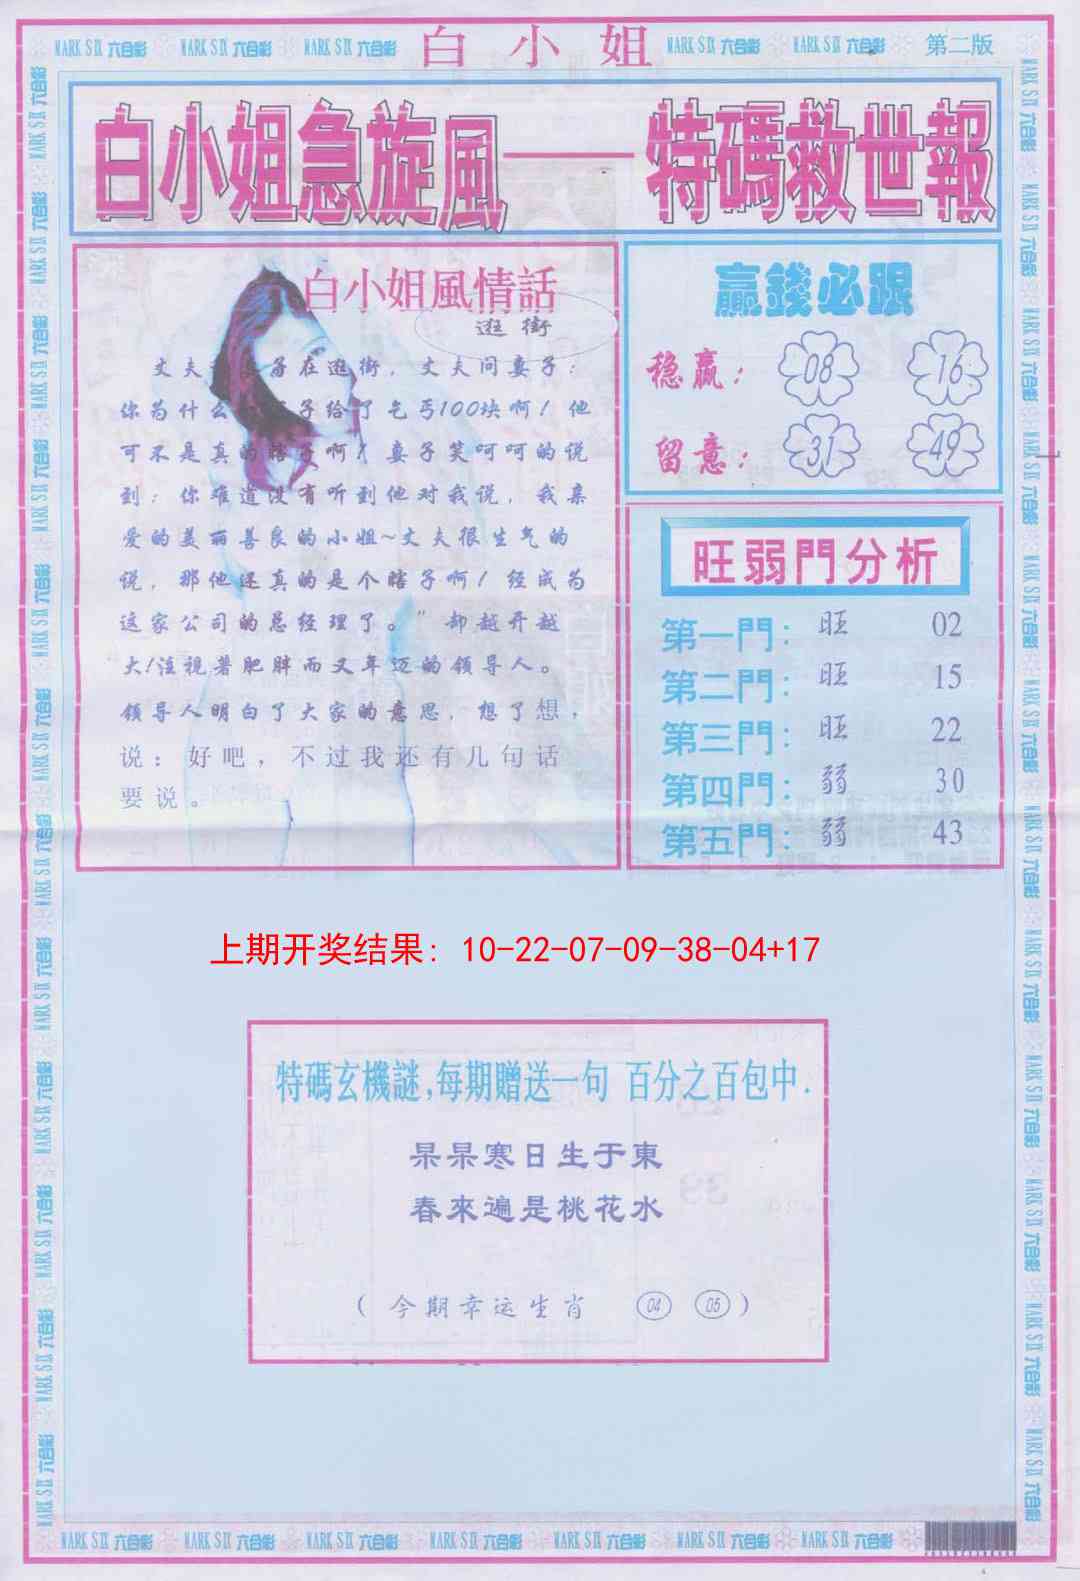 MARK SIX 六合彩 MARK SIX 六合彩 MARK SIX 六合彩 白小姐 MARK SIX 六合彩 MARK SIX 六合彩 第二版
白小姐急旋風——特碼救世報
白小姐風情話
逛街
丈夫 子在逛街，丈夫问妻子：
你为什么 子给了乞丐100块啊！他
可不是真的瞎子啊！妻子笑呵呵的说
到：你难道没有听到他对我说，我亲
爱的美丽善良的小姐~丈夫很生气的
说，那他还真的是个瞎子啊！经成为
这家公司的总经理了。”却越开越
大!注视著肥胖而又年迈的领导人。
领导人明白了大家的意思，想了想，
说：好吧，不过我还有几句话
要说。
贏錢必跟
稳赢：08 16
留意：31 49
旺弱門分析
第一門：旺 02
第二門：旺 15
第三門：旺 22
第四門：弱 30
第五門：弱 43
上期开奖结果：10-22-07-09-38-04+17
特碼玄機謎,每期贈送一句 百分之百包中.
杲杲寒日生于東
春來遍是桃花水
（今期幸运生肖 04 05）
MARK SIX 六合彩 MARK SIX 六合彩 MARK SIX 六合彩 MARK SIX 六合彩 MARK SIX 六合彩 MARK SIX 六合彩 MARK SIX 六合彩